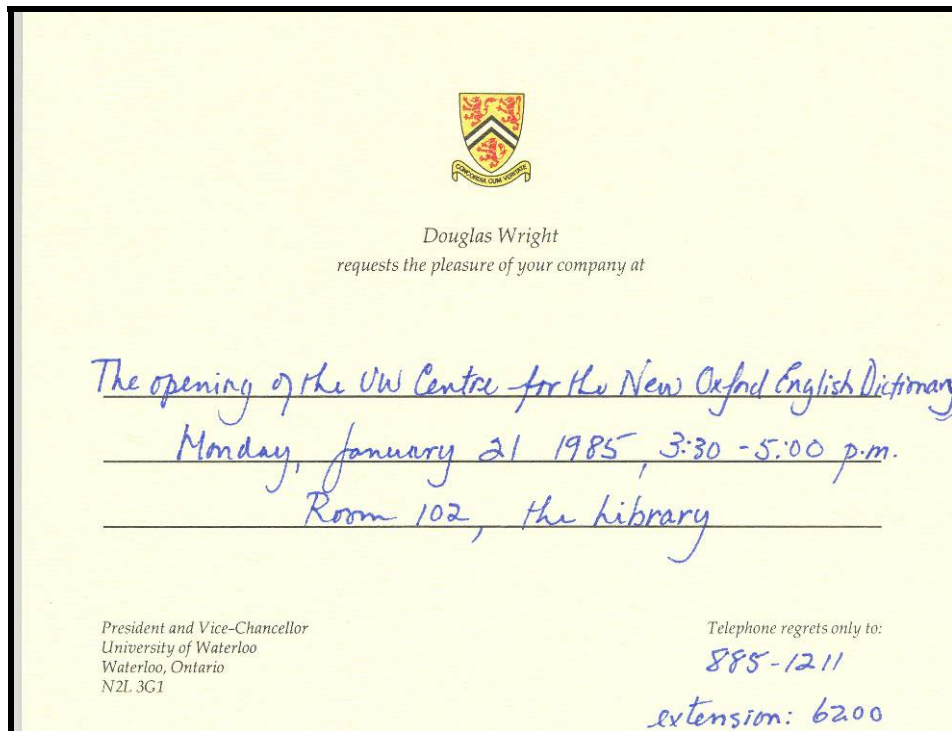 CONCORDIA CUM VERITATE
Douglas Wright
requests the pleasure of your company at
The opening of the UW Centre for the New Oxford English Dictionary
Monday, January 21 1985, 3:30 - 5:00 p.m.
Room 102, the Library
President and Vice-Chancellor
University of Waterloo
Waterloo, Ontario
N2L 3G1
Telephone regrets only to:
885-1211
extension: 6200